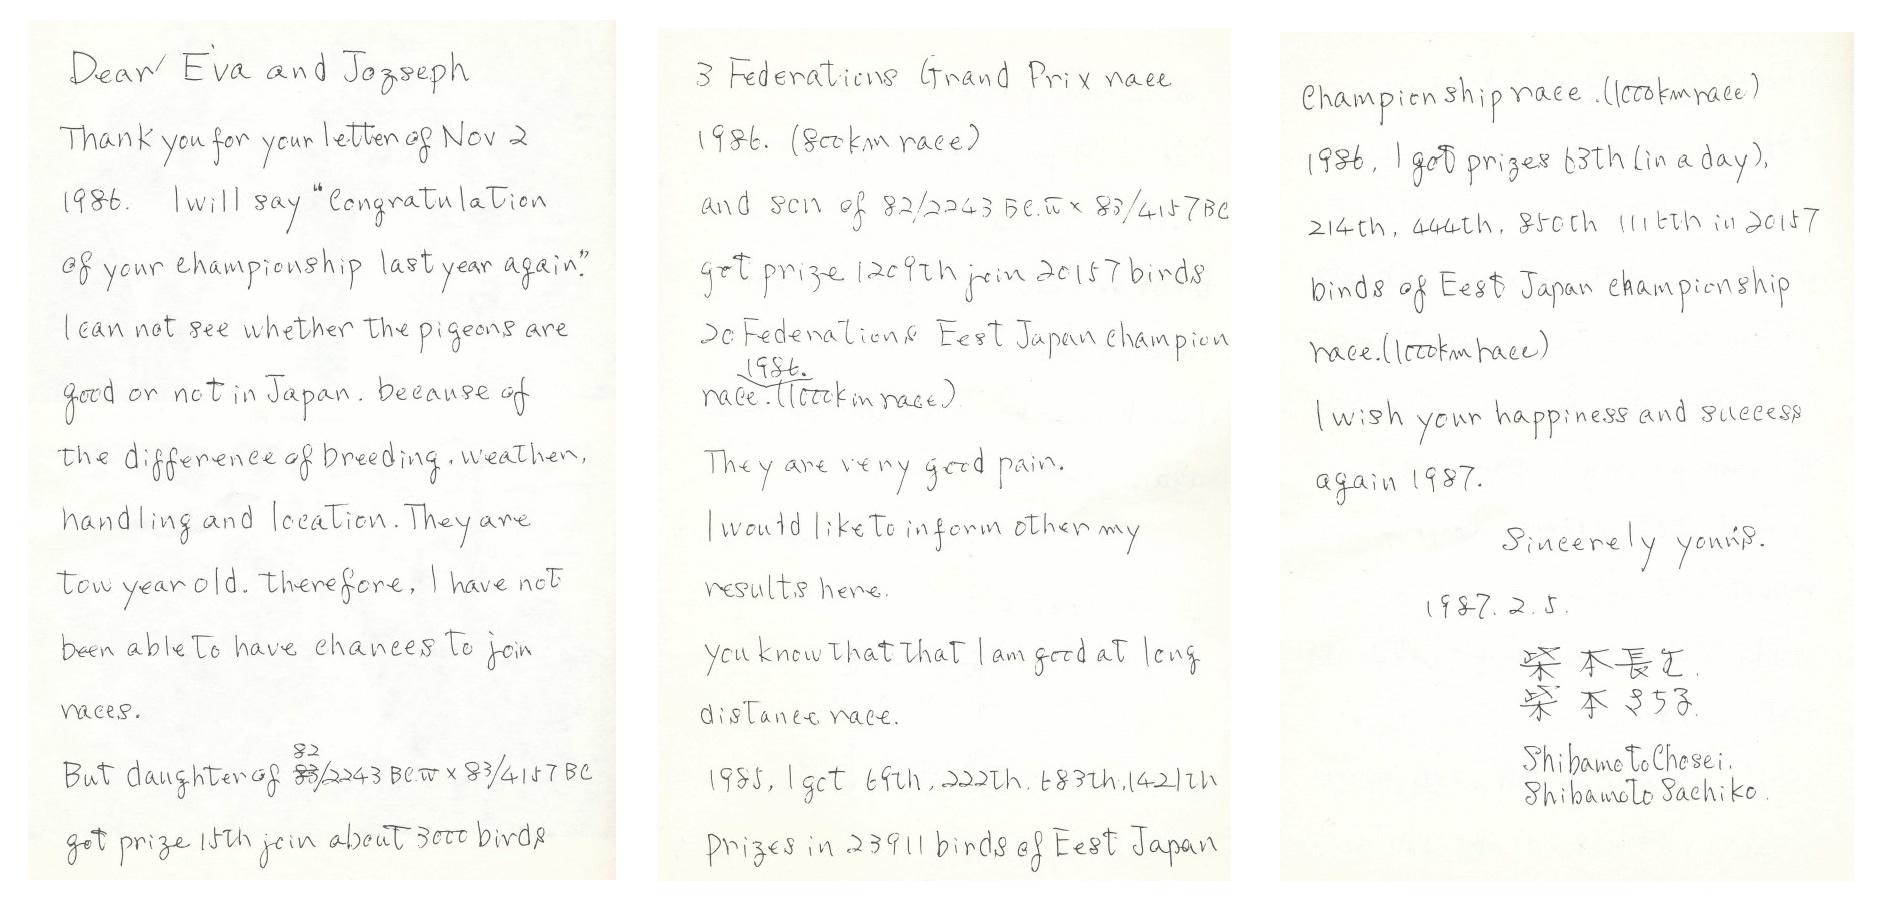 Dear Eva and Jozseph
Thank you for your letter of Nov 2
1986. I will say "Congratulation
of your championship last year again."
I can not see whether the pigeons are
good or not in Japan. because of
the difference of breeding, weather,
handling and location. They are
tow year old. therefore, I have not
been able to have chances to join
races.
82
But daughter of 83/2243 BC.w x 83/4157 BC
got prize 15th join about 3000 birds
3 Federations Grand Prix race
1986. (800km race)
and son of 82/2243 BC.w x 83/4157 BC
got prize 1209th join 20157 birds
20 Federations Eest Japan champion
1986.
race. (1000km race)
They are very good pair.
I would like to inform other my
results here.
you know that that I am good at long
distance race.
1985, I got 69th, 222th, 683th, 1421th
prizes in 23911 birds of Eest Japan
Championship race. (1000km race)
1986, I got prizes 63th (in a day),
214th, 444th, 850th 1116th in 20157
birds of Eest Japan championship
race. (1000km race)
I wish your happiness and success
again 1987.
Sincerely yours.
1987. 2. 5.
柴本長
柴本さち子
Shibamoto Chosei.
Shibamoto Sachiko.